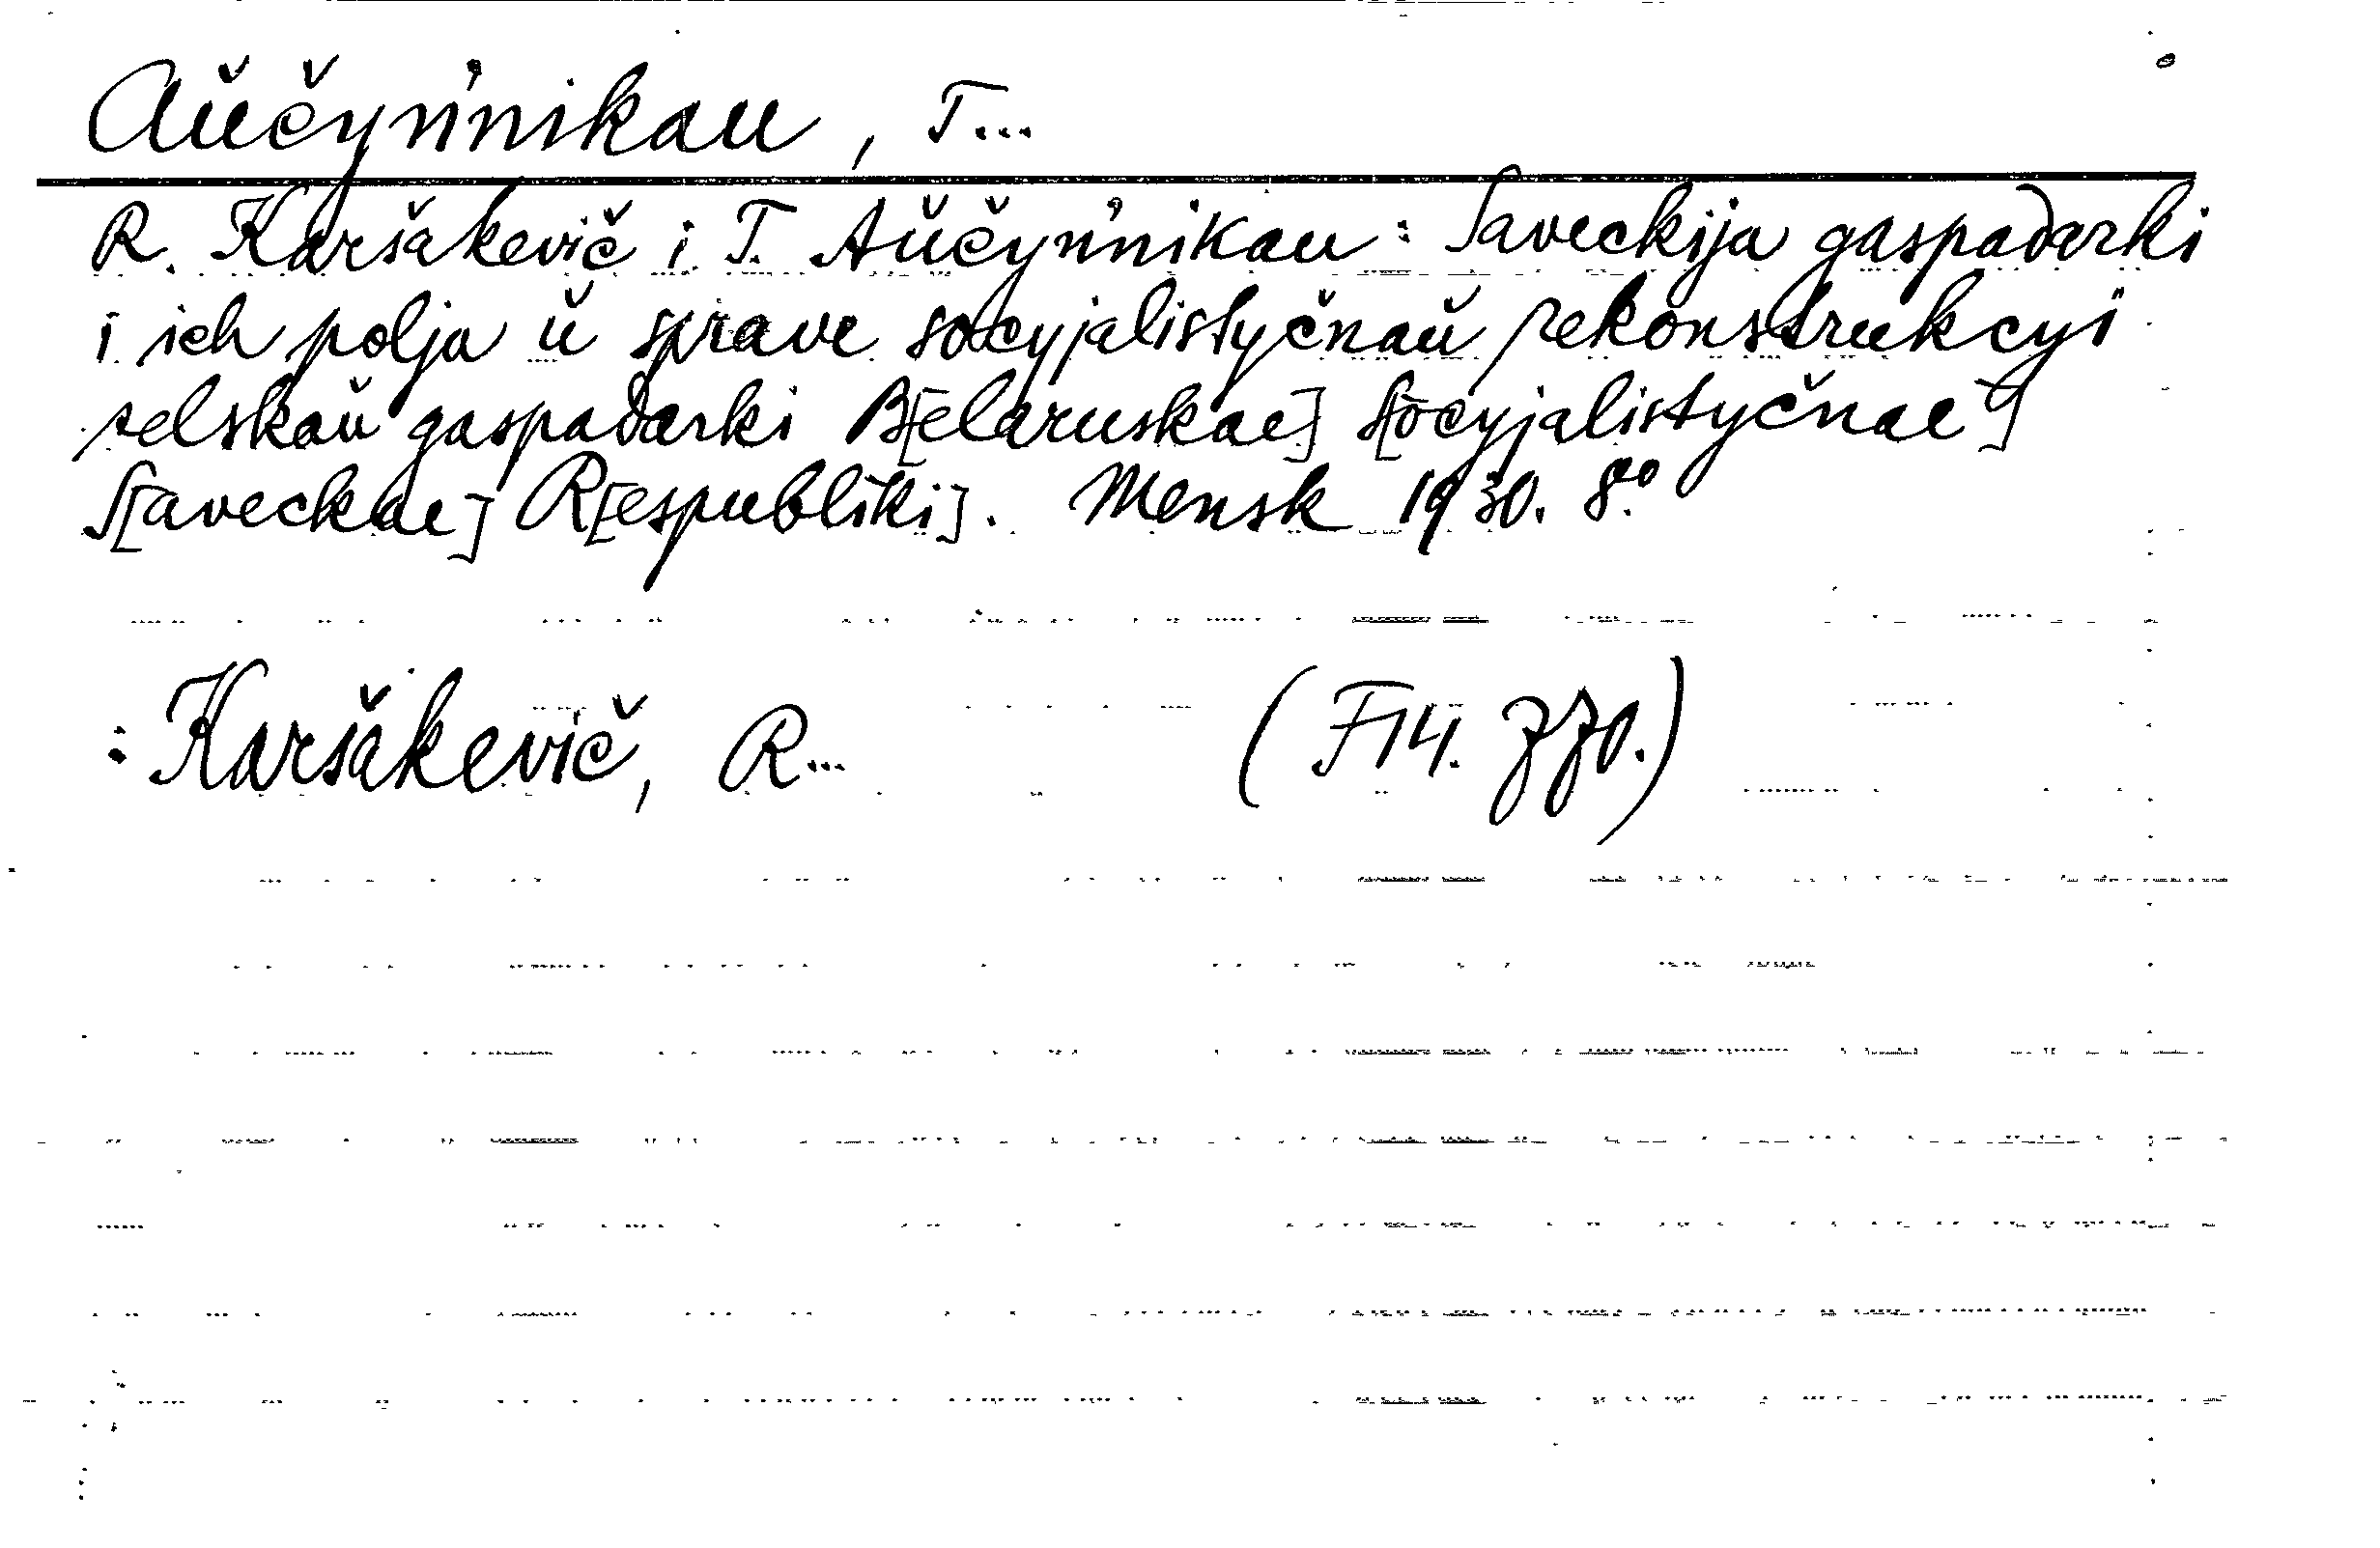 Aŭčyńnikau, T...
R. Karšakevič i T. Aŭčyńnikau: Saveckija gaspadarki
i ich polja ŭ sprave socyjalistyčnaŭ rekonstrukcyi
selskaŭ gaspadarki B[elaruskae] S[ocyjalistyčnae]
S[aveckae] R[espubliki]. Mensk 1930. 8:o
: Karšakevič, R... (F14. 370.)